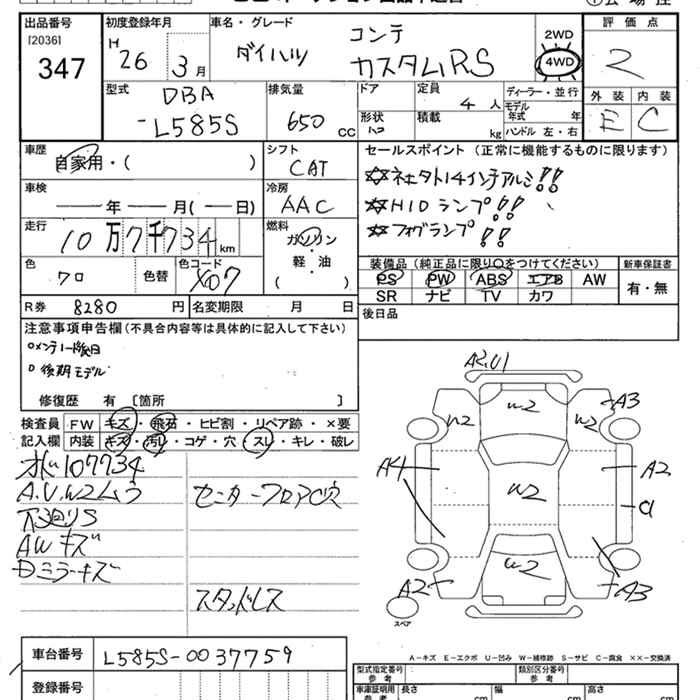 出品番号
[2036]
347
初度登録年月
H
26 3 月
車名・グレード
ダイハツ
コンテ
カスタムRS
2WD
4WD
評価点
2
外装 内装
E C
型式
DBA
-L585S
排気量
650 CC
ドア
形状
定員
4 人
積載
kg
ディーラー・並行
モデル
年式 年
ハンドル 左・右
車歴
自家用・( )
シフト
CAT
車検
年 月( 日)
冷房
AAC
走行
10 万 7 千 734 km
燃料
ガソリン
・
軽・油
( )
色
クロ
色替
色コード
X07
R券 8280 円
名変期限 月 日
セールスポイント (正常に機能するものに限ります)
☆ネェタト14インチアルミ!!
☆HIDランプ!!
☆フォグランプ!!
装備品 (純正品に限り○をつけてください)
新車保証書
PS PW ABS エアB AW
SR ナビ TV カワ
有・無
後日品
注意事項申告欄(不具合内容等は具体的に記入して下さい)
○メンテノート後日
○後期モデル
修復歴 有 [箇所 ]
検査員
記入欄
FW キズ・飛石・ヒビ割・リペア跡・×要
内装 キズ・汚レ・コゲ・穴・スレ・キレ・破レ
107734
A.U.W2ムラ
下廻りS
AWキズ
Dミラーキズ
センターフロアC穴
スタッドレス
A2.U1
A3
W2
W2
W2
A4
W2
A2
a
W2
A2
A3
スペア
A－キズ E－エクボ U－凹み W－補修跡 S－サビ C－腐食 ××－交換済
車台番号 L585S-0037759
登録番号
型式指定番号
類別区分番号
車庫証明用
参考
長さ cm
幅 cm
高さ cm